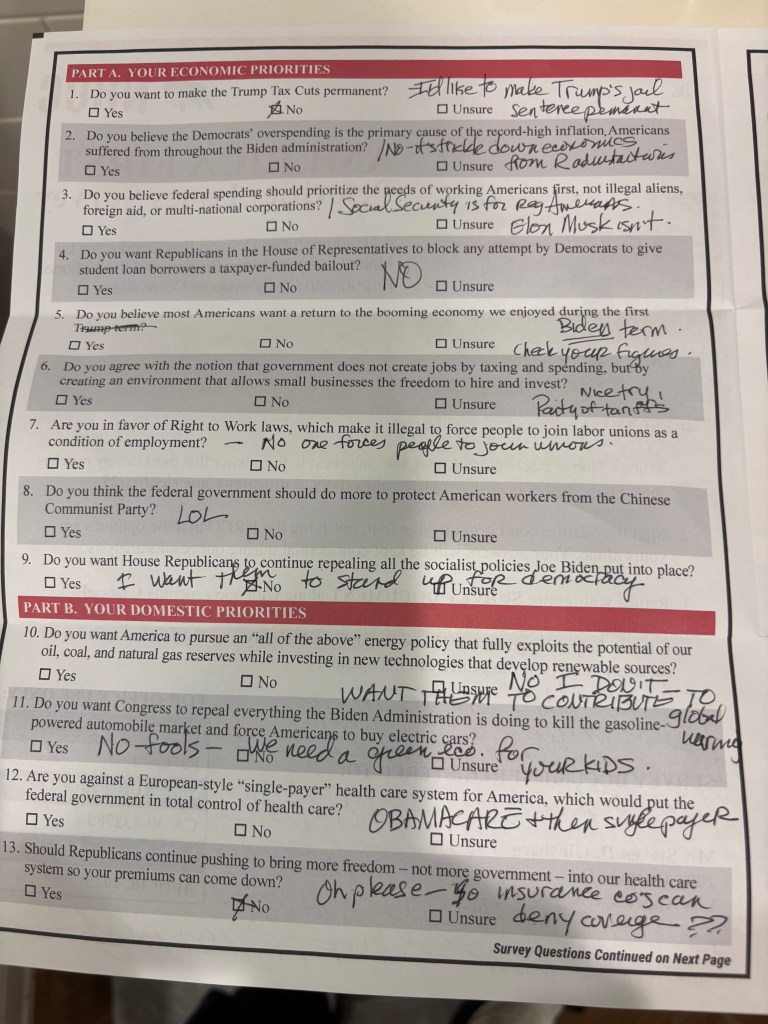 PART A. YOUR ECONOMIC PRIORITIES
1. Do you want to make the Trump Tax Cuts permanent? I'd like to make Trump's jail
☐ Yes ☒ No ☐ Unsure sentence permanent
2. Do you believe the Democrats' overspending is the primary cause of the record-high inflation Americans
suffered from throughout the Biden administration? / No - it's trickle down economics
☐ Yes ☐ No ☐ Unsure from
3. Do you believe federal spending should prioritize the needs of working Americans first, not illegal aliens,
foreign aid, or multi-national corporations? / Social Security is for Reg Americans.
☐ Yes ☐ No ☐ Unsure Elon Musk isn't.
4. Do you want Republicans in the House of Representatives to block any attempt by Democrats to give
student loan borrowers a taxpayer-funded bailout? NO
☐ Yes ☐ No ☐ Unsure
5. Do you believe most Americans want a return to the booming economy we enjoyed during the first
Trump term? Biden term.
☐ Yes ☐ No ☐ Unsure Check your figures.
6. Do you agree with the notion that government does not create jobs by taxing and spending, but by
creating an environment that allows small businesses the freedom to hire and invest? Nice try,
☐ Yes ☐ No ☐ Unsure Party of tariffs
7. Are you in favor of Right to Work laws, which make it illegal to force people to join labor unions as a
condition of employment? — No one forces people to join unions.
☐ Yes ☐ No ☐ Unsure
8. Do you think the federal government should do more to protect American workers from the Chinese
Communist Party? LOL
☐ Yes ☐ No ☐ Unsure
9. Do you want House Republicans to continue repealing all the socialist policies Joe Biden put into place?
☐ Yes I want them ☒ No to stand up for democracy ☐ Unsure
PART B. YOUR DOMESTIC PRIORITIES
10. Do you want America to pursue an “all of the above” energy policy that fully exploits the potential of our
oil, coal, and natural gas reserves while investing in new technologies that develop renewable sources?
☐ Yes ☐ No ☐ Unsure NO I DON'T
WANT THEM TO CONTRIBUTE TO
11. Do you want Congress to repeal everything the Biden Administration is doing to kill the gasoline- global
powered automobile market and force Americans to buy electric cars? warming
☐ Yes NO fools - ☐ No We need a green eco. for ☐ Unsure YOUR KIDS.
12. Are you against a European-style “single-payer” health care system for America, which would put the
federal government in total control of health care? OBAMACARE + then single payer
☐ Yes ☐ No ☐ Unsure
13. Should Republicans continue pushing to bring more freedom – not more government – into our health care
system so your premiums can come down? Oh please - so insurance co's can
☐ Yes ☒ No ☐ Unsure deny coverage ??
Survey Questions Continued on Next Page